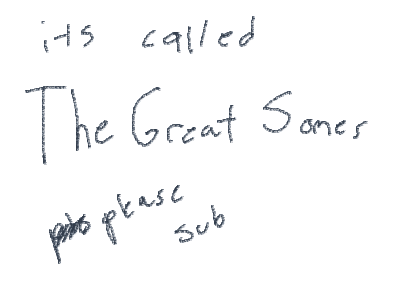 its called
The Great Somes
please
sub